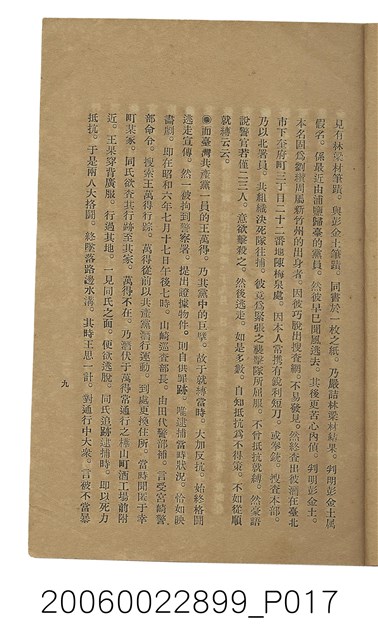 見有林樑材筆蹟。與彭金土筆蹟。同書於一枚之紙。乃嚴詰林樑材結果。判明彭金土屬
假名。係最近由浦鹽歸臺的黨員。然彼早已聞風逃去。其後更苦心內偵。判明彭金土。
本名因爲劉纘周屬新竹州的出身者。因彼巧脫出搜查網。不易發見。然終查出彼潛在臺北
市下奎府町三丁目二十二番地陳梅泉處。因本人常携有銳利短刀。或拳銃。搜查本部。
乃以北署員。共組織決死隊往捕。彼竟爲緊張之襲擊隊所屈服。不曾抵抗就縛。然豪語
說警官若僅二三人。意欲擊殺之。然後逃走。如是多數。自知抵抗爲不得策。不如從順
就縛云云。
◉而臺灣共產黨一員的王萬得。乃其黨中的巨擘。故于就縛當時。大加反抗。始終格鬪
逃走宣傳。然一被拘到警察署。提出證據物件。則自供罪跡。唯逮捕當時狀況。恰如映
畵劇。即在昭和六年七月十七日午後七時。山崎巡查部長。由田代警部補。言受宮崎警
部命令。搜索王萬得行踪。萬得從前以共產黨猫行運動。到處更換住所。當時聞匿于幸
町某家。同氏欲查其行跡至其家。萬得不在。乃潛伏于萬得常通行之樺山町酒工場前附
近。王果穿背廣服。行過其地。一見同氏之面。便欲逃脫。同氏追跡逮捕時。即以死力
抵抗。于是兩人大格鬪。終墜落路邊水溝。其時王思一計。對通行中大衆。言被不當暴
九
20060022899_P017